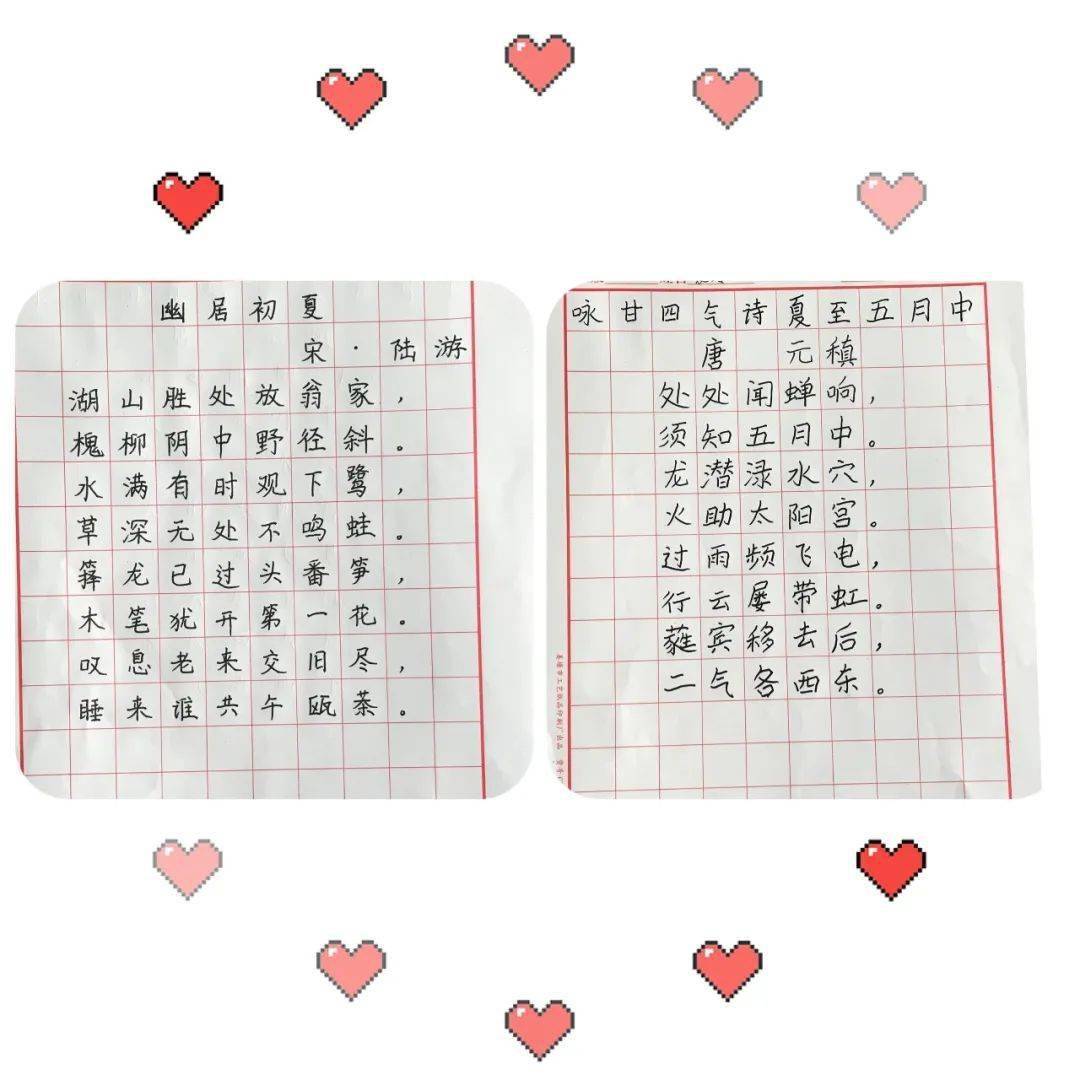 幽居初夏
宋·陆游
湖山胜处放翁家，
槐柳阴中野径斜。
水满有时观下鹭，
草深无处不鸣蛙。
箨龙已过头番笋，
木笔犹开第一花。
叹息老来交旧尽，
睡来谁共午瓯茶。
咏廿四气诗夏至五月中
唐 元稹
处处闻蝉响，
须知五月中。
龙潜渌水穴，
火助太阳宫。
过雨频飞电，
行云屡带虹。
蕤宾移去后，
二气各西东。